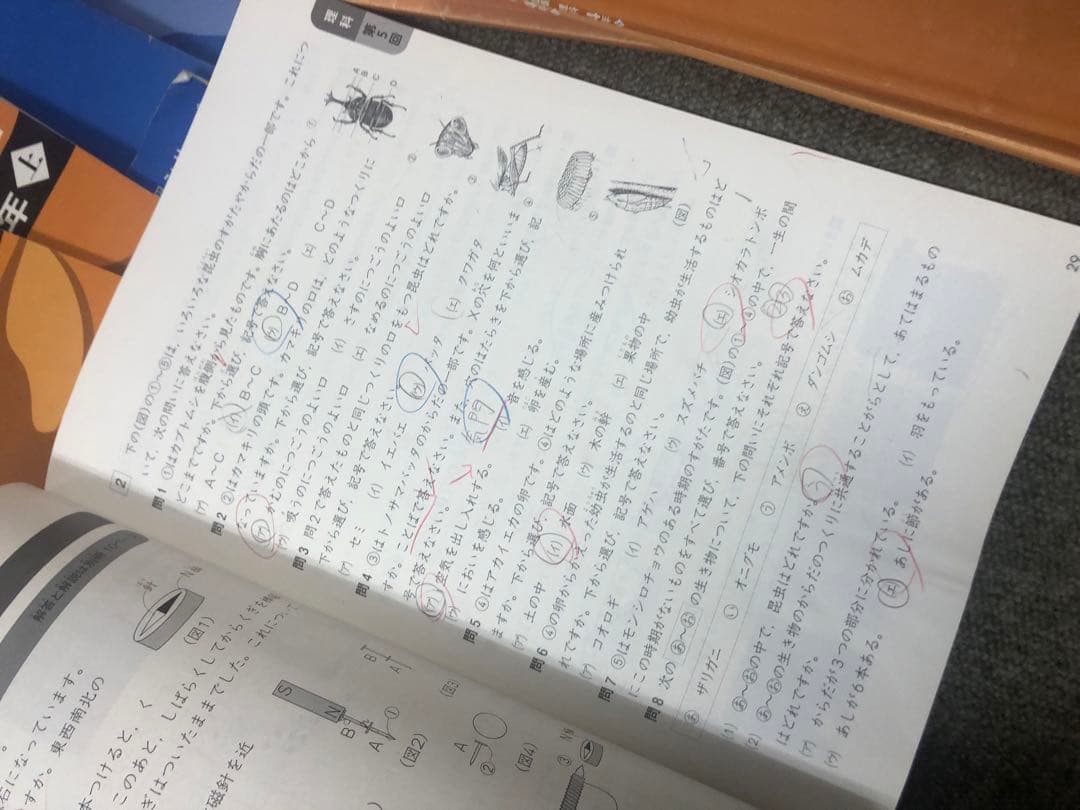 理科 第5回
2 下の(図)の①〜⑤は、いろいろな昆虫のすがたやからだの一部です。これにつ
いて、次の問いに答えなさい。
問1 ①はカブトムシを腹側から見たものです。胸にあたるのはどこから
どこまでですか。下から選び、記号で答えなさい。
(ア) A〜C (イ) B〜C (ウ) B〜D (エ) C〜D
問2 ②はカマキリの頭です。カマキリの口は、どのようなつくりに
なっていますか。下から選び、記号で答えなさい。
(ア) かむのにつごうのよい口 (イ) さすのにつごうのよい口
(ウ) 吸うのにつごうのよい口 (エ) なめるのにつごうのよい口
問3 問2で答えたものと同じつくりの口をもつ昆虫はどれですか。
下から選び、記号で答えなさい。
(ア) セミ (イ) イエバエ (ウ) バッタ (エ) クワガタ
問4 ③はトノサマバッタのからだの一部です。Xの穴を何といいま
すか。ことばで答えなさい。また、穴のはたらきを下から選び、記
号で答えなさい。
気門
(ア) 空気を出し入れする。 (イ) 音を感じる。
(ウ) においを感じる。 (エ) 卵を産む。
問5 ④はアカイエカの卵です。④はどのような場所に産みつけられ
ますか。下から選び、記号で答えなさい。
(ア) 土の中 (イ) 水面 (ウ) 木の幹 (エ) 果物の中
問6 ④の卵からかえった幼虫が生活するのと同じ場所で、幼虫が生活するものはど
れですか。下から選び、記号で答えなさい。
(ア) コオロギ (イ) アゲハ (ウ) スズメバチ (エ) シオカラトンボ
問7 ⑤はモンシロチョウのある時期のすがたです。(図)の①〜④の中で、一生の間
にこの時期がないものをすべて選び、番号で答えなさい。
②③
問8 次のあ〜おの生き物について、下の問いにそれぞれ記号で答えなさい。
あ ザリガニ い オニグモ う アメンボ え ダンゴムシ お ムカデ
(1) あ〜おの中で、昆虫はどれですか。
う
(2) あ〜おの生き物のからだのつくりに共通することがらとして、あてはまるもの
はどれですか。
(ア) からだが3つの部分に分かれている。 (イ) 羽をもっている。
(ウ) あしが6本ある。 (エ) あしに節がある。
① A B C D
②
③
④
⑤
(図)
29
解答と解説は別冊
針
N極
(図1)
S
N
B
A
①
(図2)
B
A
図3
A
②
(図4)
③
N極
になっています。
すか。東西南北の
本つけると、く
このあと、しばらくしてからくぎを
ぎはついたままでした。これについ
磁針を近
年 上